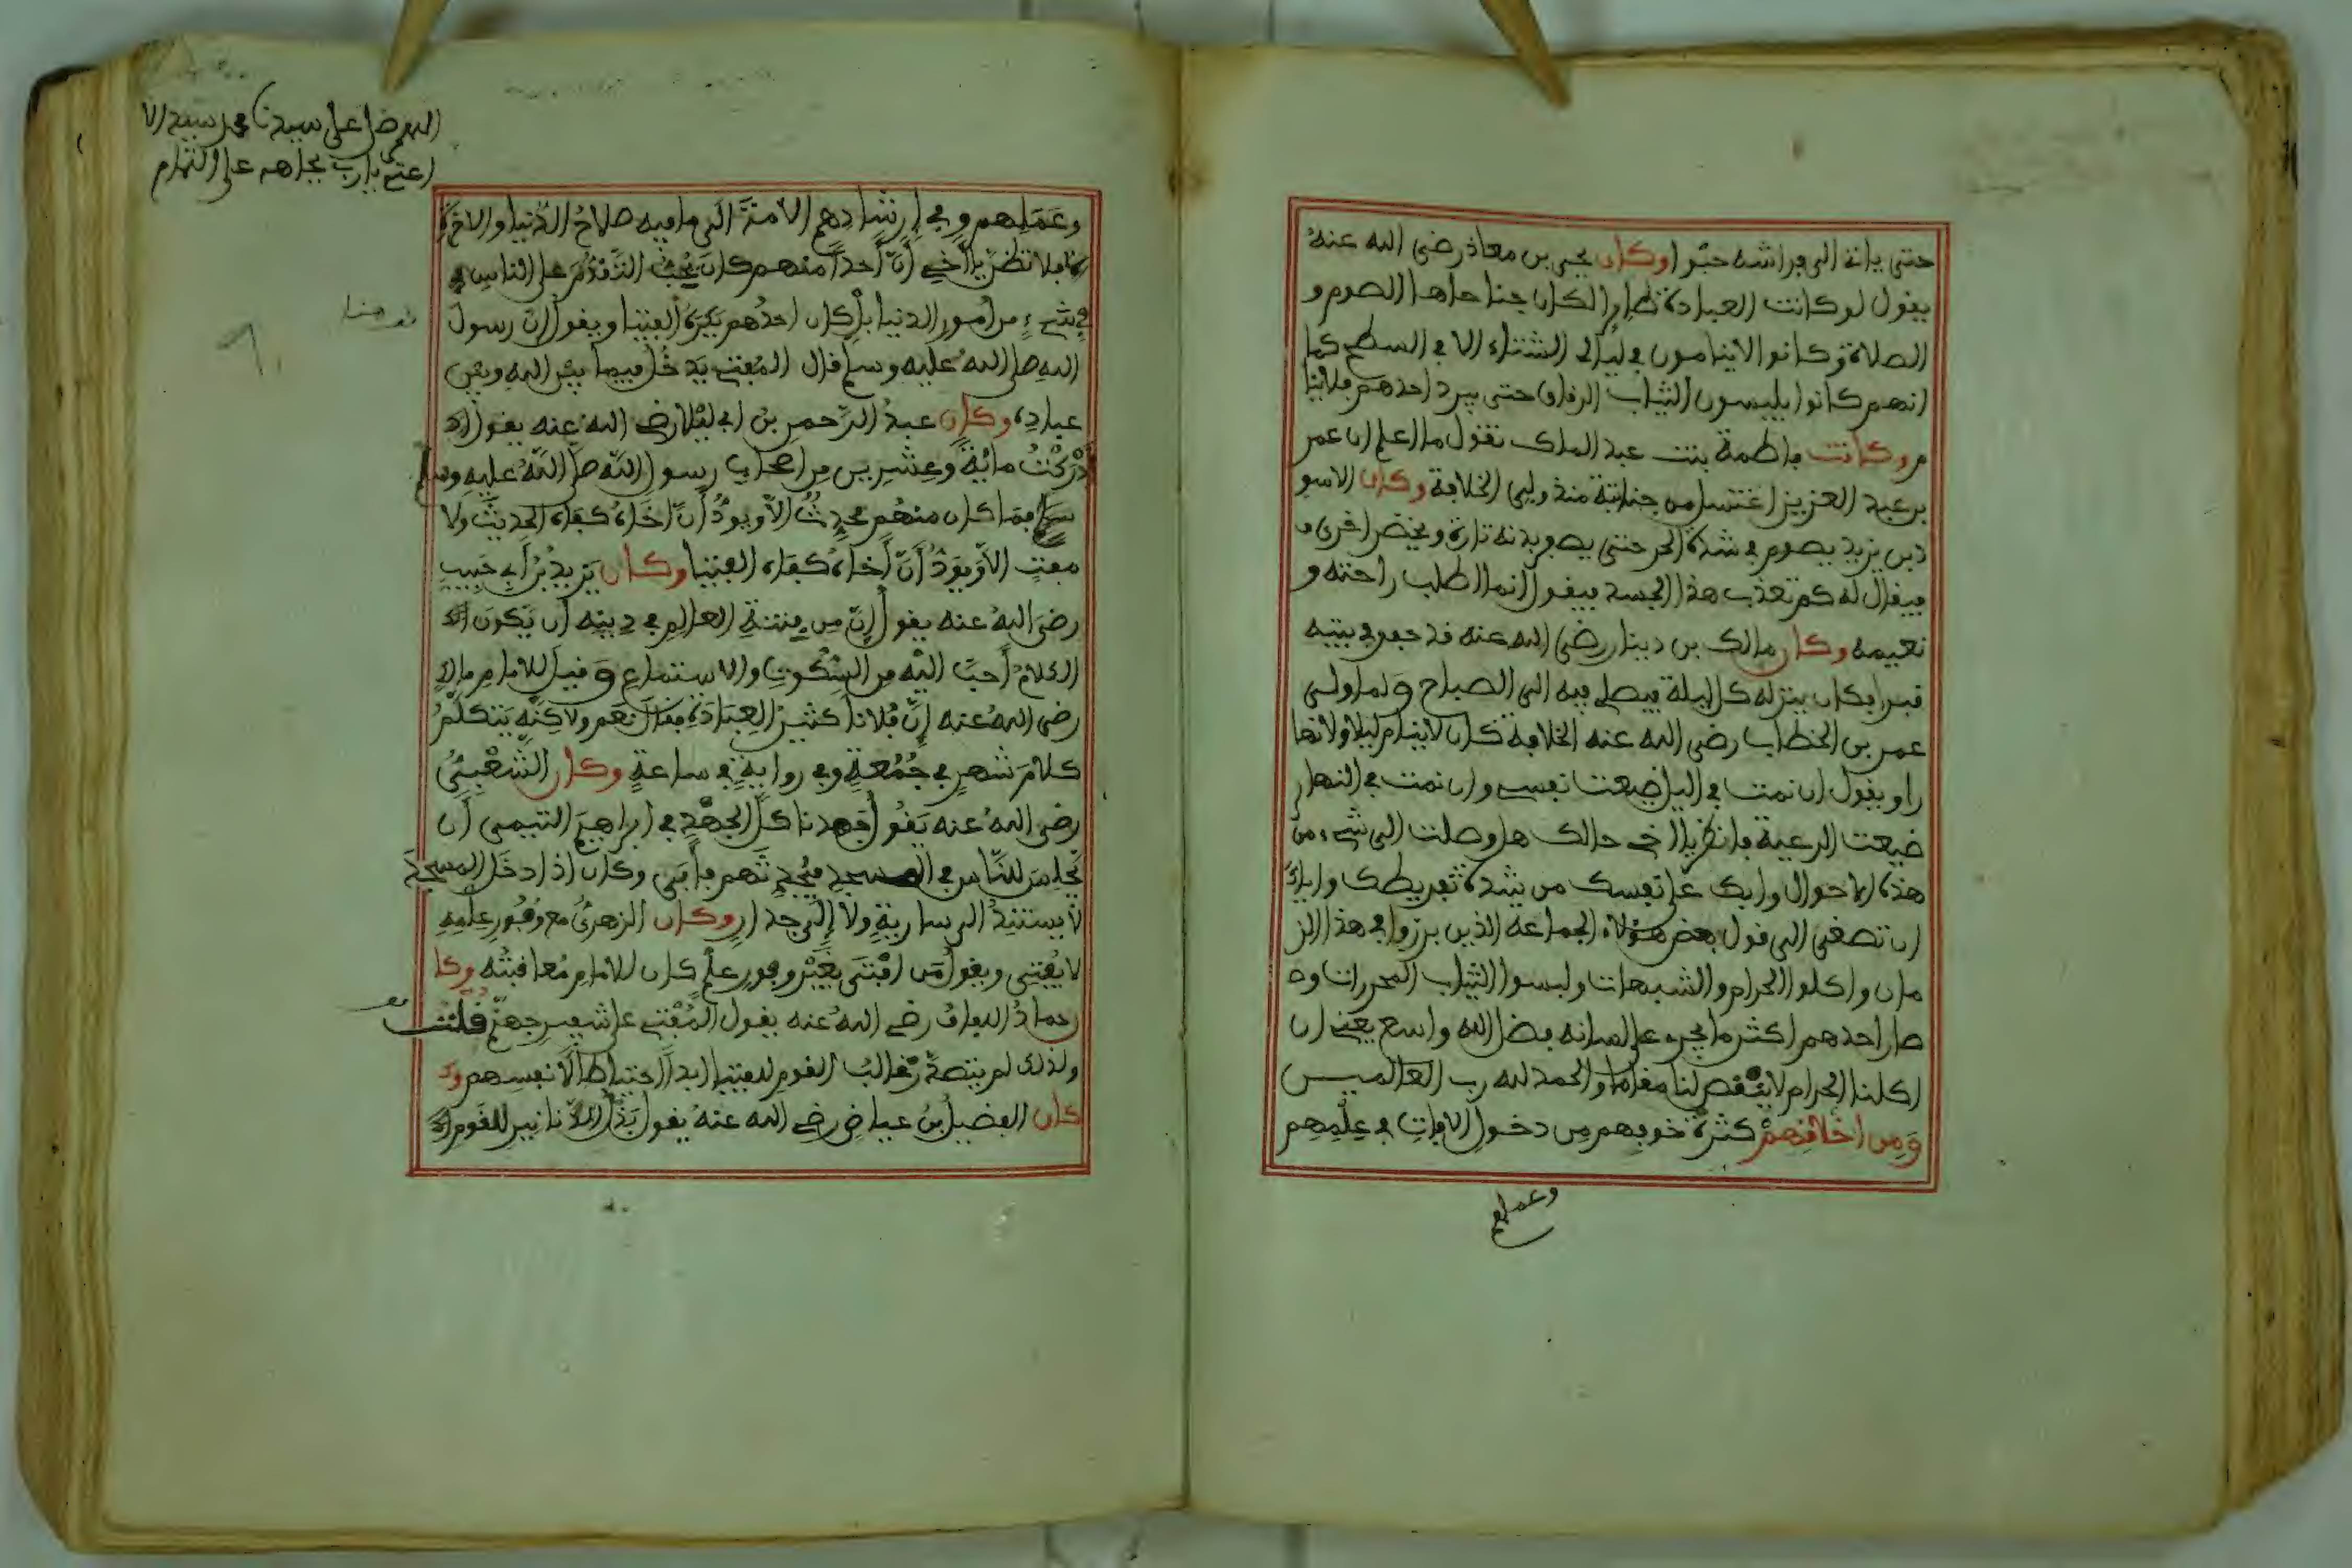 حتى ياتي الى فراشه حبوا وكان يحيى بن معاذ رضى الله عنه
يفول لو كانت العبادة طايرا لكان جناحاها الصوم و
الصلاة وكانوا لا ينامون في ليالي الشتاء الا في السطح كما
انهم كانوا يلبسون الثياب الرفاق حتى يبرد احدهم فلا ينا
م وكانت فاطمة بنت عبد الملك تقول ما اعلم ان عمر
بن عبد العزيز اغتسل من جنابة منذ ولي الخلافة وكان الاسو
د بن يزيد يصوم في شدة الحر حتى يصفر بدنه تارة ويخضر اخرى و
فيفال له كم تعذب هذا الجسد فيفول انما اطلب راحته و
نعيمه وكان مالك بن دينار رضى الله عنه قد حفر في بيته
قبرا فكان ينزله كل ليلة فيصلي فيه الى الصباح ولما ولي
عمر بن الخطاب رضى الله عنه الخلافة كان لا ينام ليلا ولا نها
را ويفول ان نمت في اليل ضيعت نفسي وان نمت في النهار
ضيعت الرعية فانظر يا اخي حالك هل وصلت الى شيء من
هذه الاحوال وابك على نفسك من شدة تفريطك واياك
ان تصغى الى فول بعض هؤلاء الجماعة الذين برزوا في هذا الز
مان واكلوا الحرام والشبهات ولبسوا الثياب المحررات و
صار احدهم اكثر ما يجرى على لسانه فضل الله واسع يعني ان
اكلنا الحرام لا ينفص لنا مفاما والحمد لله رب العالميس
ومن اخلافهم كثرة خوفهم من دخول الافات في علمهم
وعملهم
اللهم صل على سيدنا محمد سيد الا
يارب بجاهه على التمام
وعملهم وفي ارشادهم الامة الى ما فيه صلاح الدنيا والاخرة
فلا تظن يا اخي ان احدا منهم كان يحب التقدم على الناس في
في شيء من امور الدنيا بل كان احدهم يكره الفتيا ويفول ان رسول
الله صلى الله عليه وسلم فال المفتي يدخل فيما بين الله وبين
عباده وكان عبد الرحمن بن ابي ليلا رضى الله عنه يفول
ادركت ماية وعشرين من اصحاب رسول الله صلى الله عليه وسلم
فما كان منهم محدث الا ويود ان اخاه كفاه الحديث ولا
مفت الا ويود ان اخاه كفاه الفتيا وكان يزيد بن ابي حبيب
رضى الله عنه يفول ان من فتنة العالم في دينه ان يكون
الكلام احب اليه من السكوت والاستماع وفيل للامام مالك
رضى الله عنه ان فلانا كثير العبادة ففال نعم ولاكنه يتكلم
كلام شهر في جمعة وفي رواية في ساعة وكان الشعبي
رضى الله عنه يفول جهدنا كل الجهد في ابراهيم التيمي ان
يجلس للناس في المسجد فيحدثهم فابى وكان اذا دخل المسجد
لا يستند الى سارية ولا الى جدار وكان الزهري مع وفور علمه
لا يفتي ويفول من افتى بغير وفور علم كان للامام معافبته وكا
حماد رضى الله عنه يفول المفتي على شفير جهنم فلت
ولذلك لم يتصد غالب الفوم للفتيا ابدا احتياطا لانفسهم و
كان الفضيل بن عياض رضى الله عنه يفول بذل الدنانير للفوم